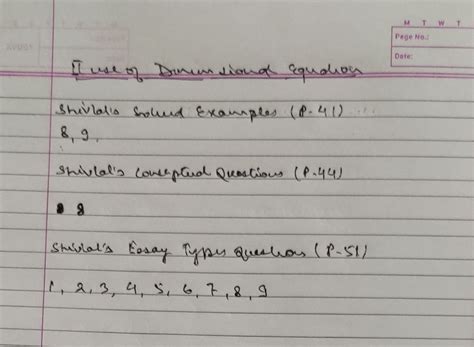 M T W T
Page No.:
Date:
I use of Dimensional Equation
Shivlal's Solved Examples (P-41)
8, 9.
Shivlal's Conceptual Questions (P.44)
8
Shivlal's Essay Types Question (P-51)
1, 2, 3, 4, 5, 6, 7, 8, 9